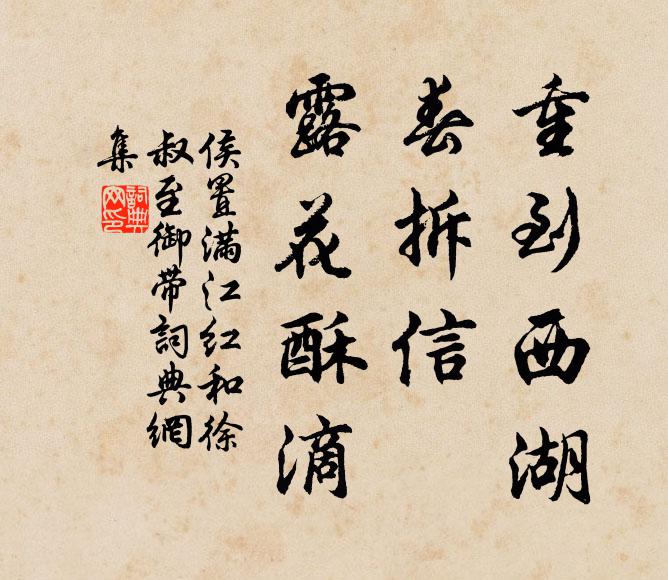 重到西湖
春拆信
露花酥滴
侯置满江红和徐
叔至御带詞典網
集
詞典
网印